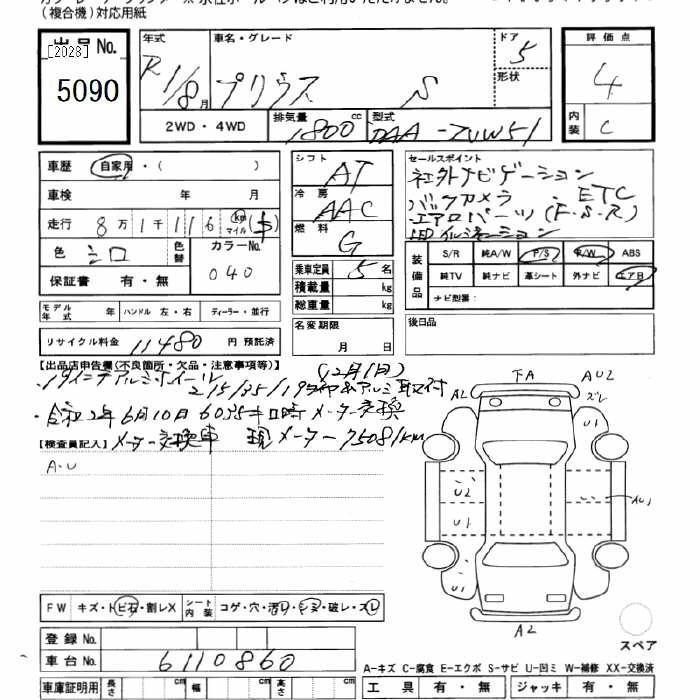 (複合機)対応用紙
出品No.
[2023]
5090
年式
R1/8月
車名・グレード
プリウス S
ドア 5
形状
評価点
4
内装 C
2WD・4WD
排気量 1800 cc
型式 DAA-ZVW51
車歴 自家用・( )
車検 年 月
走行 8万1千116 km マイル ($)
色 シロ
色替
カラーNo. 040
保証書 有・無
シフト AT
冷房 AAC
燃料 G
セールスポイント
社外ナビゲーション
バックカメラ ・ETC
エアロパーツ(F・S・R)
LEDイルミネーション
装備品
S/R 純A/W P/S P/W ABS
純TV 純ナビ 革シート 外ナビ エアB
ナビ型番:
乗車定員 5名
積載量 kg
総重量 kg
モデル年式 年 ハンドル 左・右 ディーラー・並行
名変期限
月 日
後日品
リサイクル料金 11480 円 預託済
(12月1日)
【出品店申告欄(不良箇所・欠品・注意事項等)】
・19インチアルミホイール 215/35/19 タイヤ&アルミ取付
・令和2年6月10日 60354km時 メーター交換
メーター交換車 現メーター75081km
【検査員記入】
A・U
下A
AU2
ズレ
A2
U1
U2
U1
AU1
U1
A2
スペア
FW キズ・トビ石・割レX
シート内装 コゲ・穴・汚レ・シミ・破レ・スレ
登録No.
車台No. 6110860
A-キズ C-腐食 E-エクボ S-サビ U-凹ミ W-補修 XX-交換済
車庫証明用 長さ cm 幅 cm 高さ cm
工具 有・無 ジャッキ 有・無